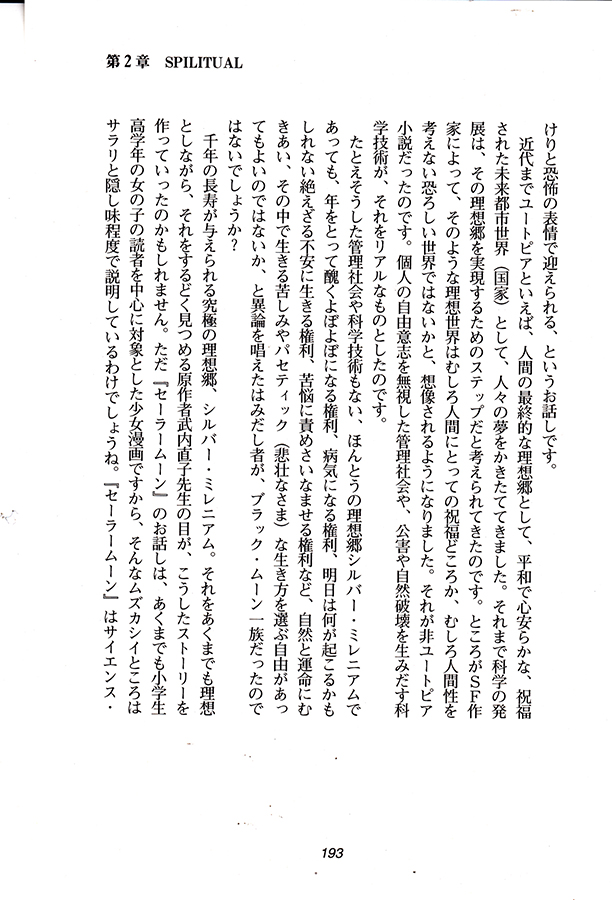 第2章　SPILITUAL
けりと恐怖の表情で迎えられる、というお話しです。
　近代までユートピアといえば、人間の最終的な理想郷として、平和で心安らかな、祝福
された未来都市世界（国家）として、人々の夢をかきたててきました。それまで科学の発
展は、その理想郷を実現するためのステップだと考えられてきたのです。ところがSF作
家によって、そのような理想世界はむしろ人間にとっての祝福どころか、むしろ人間性を
考えない恐ろしい世界ではないかと、想像されるようになりました。それが非ユートピア
小説だったのです。個人の自由意志を無視した管理社会や、公害や自然破壊を生みだす科
学技術が、それをリアルなものとしたのです。
　たとえそうした管理社会や科学技術もない、ほんとうの理想郷シルバー・ミレニアムで
あっても、年をとって醜くよぼよぼになる権利、病気になる権利、明日は何が起こるかも
しれない絶えざる不安に生きる権利、苦悩に責めさいなませる権利など、自然と運命にむ
きあい、その中で生きる苦しみやパセティック（悲壮なさま）な生き方を選ぶ自由があっ
てもよいのではないか、と異論を唱えたはみだし者が、ブラック・ムーン一族だったので
はないでしょうか？
　千年の長寿が与えられる究極の理想郷、シルバー・ミレニアム。それをあくまでも理想
としながら、それをするどく見つめる原作者武内直子先生の目が、こうしたストーリーを
作っていったのかもしれません。ただ『セーラームーン』のお話しは、あくまでも小学生
高学年の女の子の読者を中心に対象とした少女漫画ですから、そんなムズカシイところは
サラリと隠し味程度で説明しているわけでしょうね。『セーラームーン』はサイエンス・
193